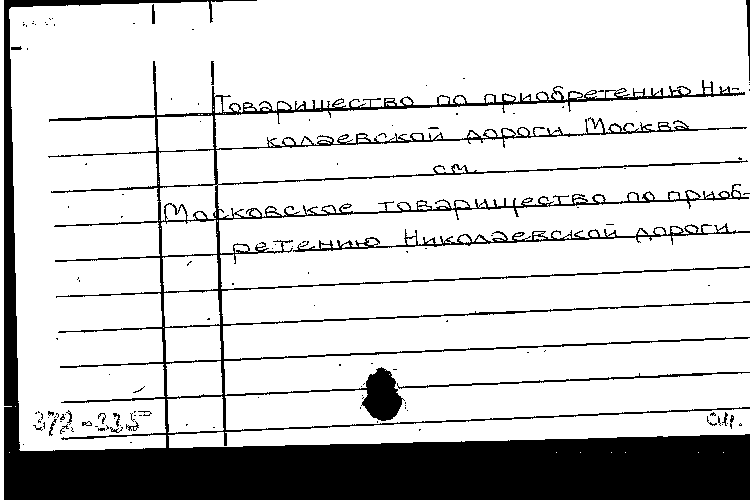 Товарищество по приобретению Ни-
колаевской дороги. Москва
см.
Московское товарищество по приоб-
ретению Николаевской дороги.
372-335
см.